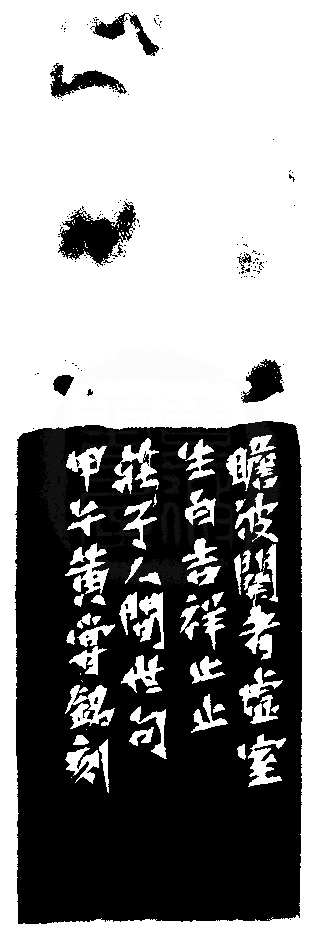 瞻彼闋者虛室
生白吉祥止止
莊子人間世句
甲午黃嘗銘刻